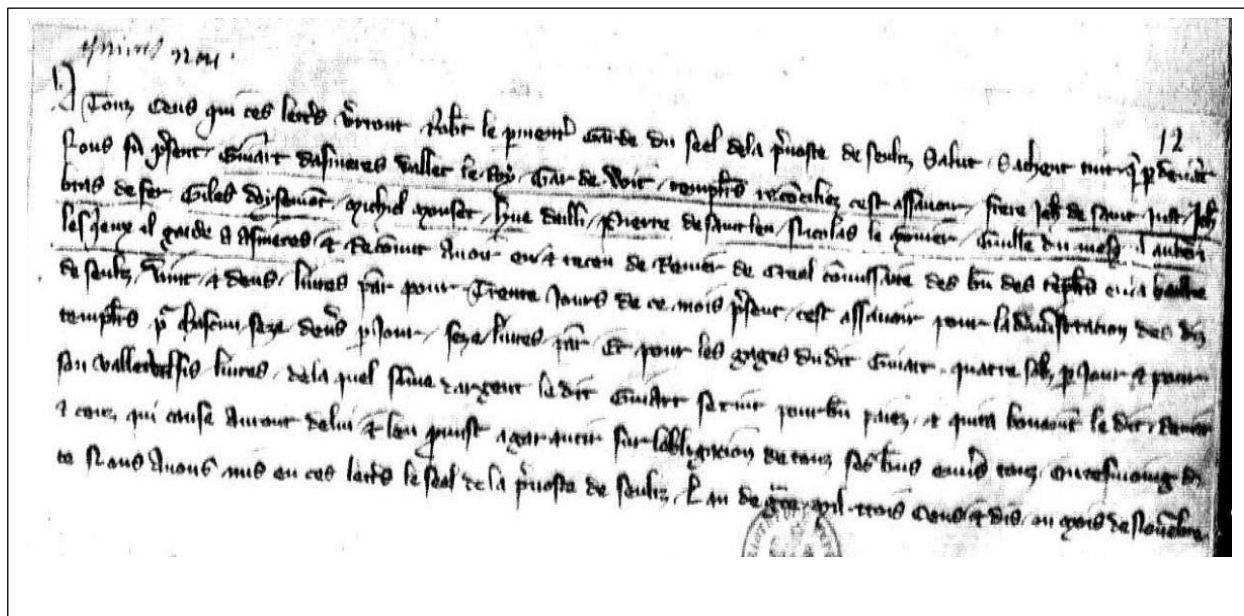 12
A Touz ceus qui ces lettres verront Robert le parment Garde du seel de la prevoste de senliz Salut Sachent tuit que par devant
Nous fu present Guiart dasnieres vallet le Roy Garde de Wit templiers reconciliez cest assavoir frere Jeh de saint just Jeh
bras de fer Giles Michel mouset hue dailli Pierre de saint leu Nicolas le Guille du mesg
les queux il garde a asnieres et reconnut Avoir eu et receu de Renier de Creel commissaire des biens des templiers en la baillie
de senliz vint et deus livres par pour Trente Jours de ce mois present cest assavoir pour laministration des diz
templiers pour chascun seze deniers par Jour seze livres par Et pour les gages du dit Guiart quatre solz par Jour et pour
son vallet sis livres de la quel some dargent le dit Guiart se tint pour bien paiez et quita bonement le dit Renier
et touz qui cause Auront de lui et len promist a garantir sur lobligacion de touz ses biens envers touz en tesmoing de
ce Nous Avons mis en ces lettres le seel de la prevoste de senliz Lan de grace mil trois cens et dis ou mois de Novembre